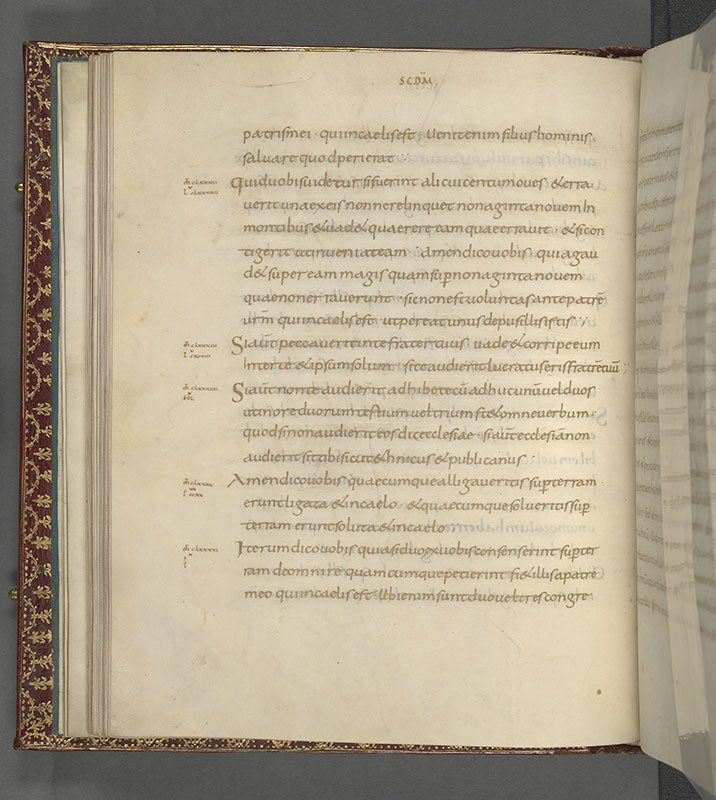 SCDM̄
patrismei · quiincaelisest Uenitenimfiliushominis,
saluare quodperierat
quiduobisuidetur sifuerint alicuicentumoues · &erra
ueritunaexeis nonnerelinquet nonagintanouemin
montibus &uad& quaerere eam quaeerrauit · &sicon
tigerit utinueniateam · amendicouobis quiagau
d& super eam magis quamsup nonagintanouem
quaenonerrauerunt · sicnonest uoluntas antepatrē
urm̄ quiincaelisest utpereatunus depusillisistis
Siaut̄ peccaueritintefratertuus uade&corripeeum
interte&ipsumsolum siteaudierit lucratuserisfratrētuū
Siaut̄ nonte audierit adhibetecū adhucunūuelduos
utinoreduorumtestium ueltrium st& omneuerbum
quodsinonaudieriteos dicecclesiae · siaut̄ecclesiānon
audierit sittibisicut&hnicus &publicanus
Amendicouobis quaecumquealligaueritis sup̄terram
eruntligata &incaelo · &quaecumquesolueritis sup̄
terram eruntsoluta&incaelo
Iterumdicouobis quiasiduoexuobisconsenserint sup̄ter
ram deomnire quamcumquepetierint fi&illisapatre
meo quiincaelisest Ubienimsuntduoueltrescongre